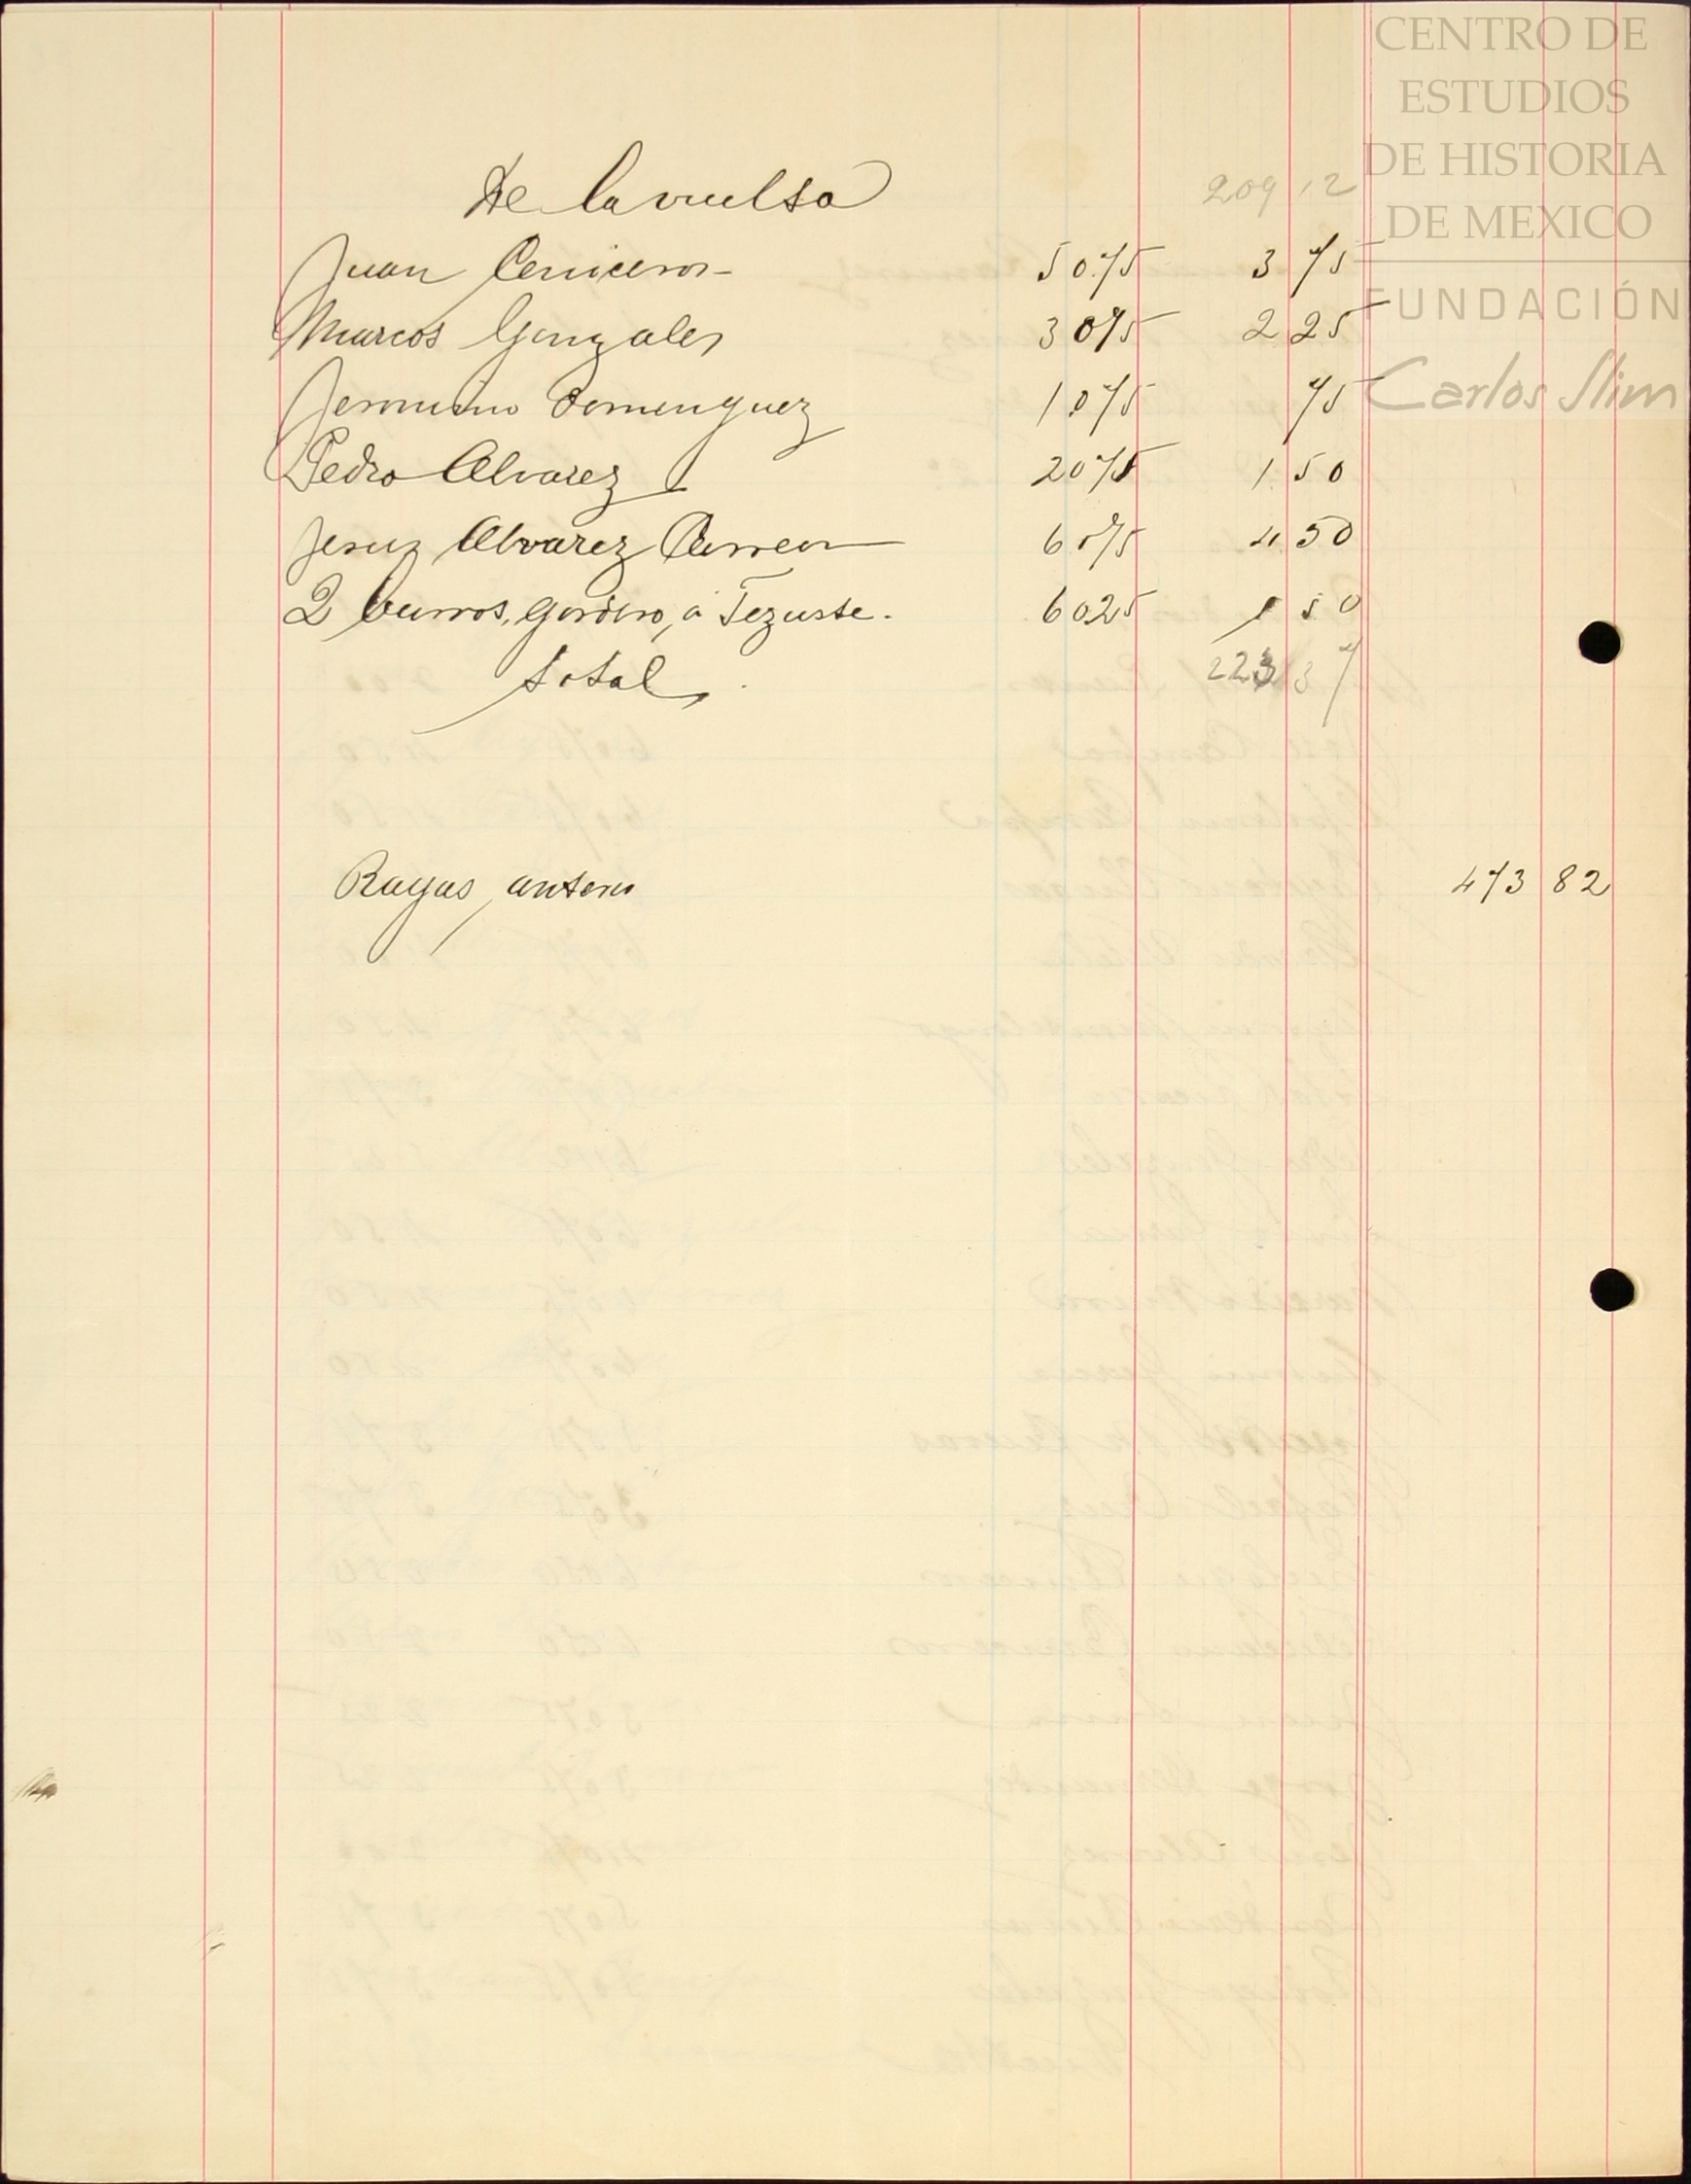 CENTRO DE
ESTUDIOS
DE HISTORIA
DE MEXICO
FUNDACIÓN
Carlos Slim
De la vuelta 209 12
Juan Ceniceros 5 0.75 3 75
Marcos Gonzales 3 075 2 25
Jermino Domenguez 1 075 75
Pedro Alvarez 2075 1 50
Jesus Alvarez 6 075 4 50
2 burros, Gordero, a Tezuste. 6 025 1 50
total 223 37
Rayas 473 82